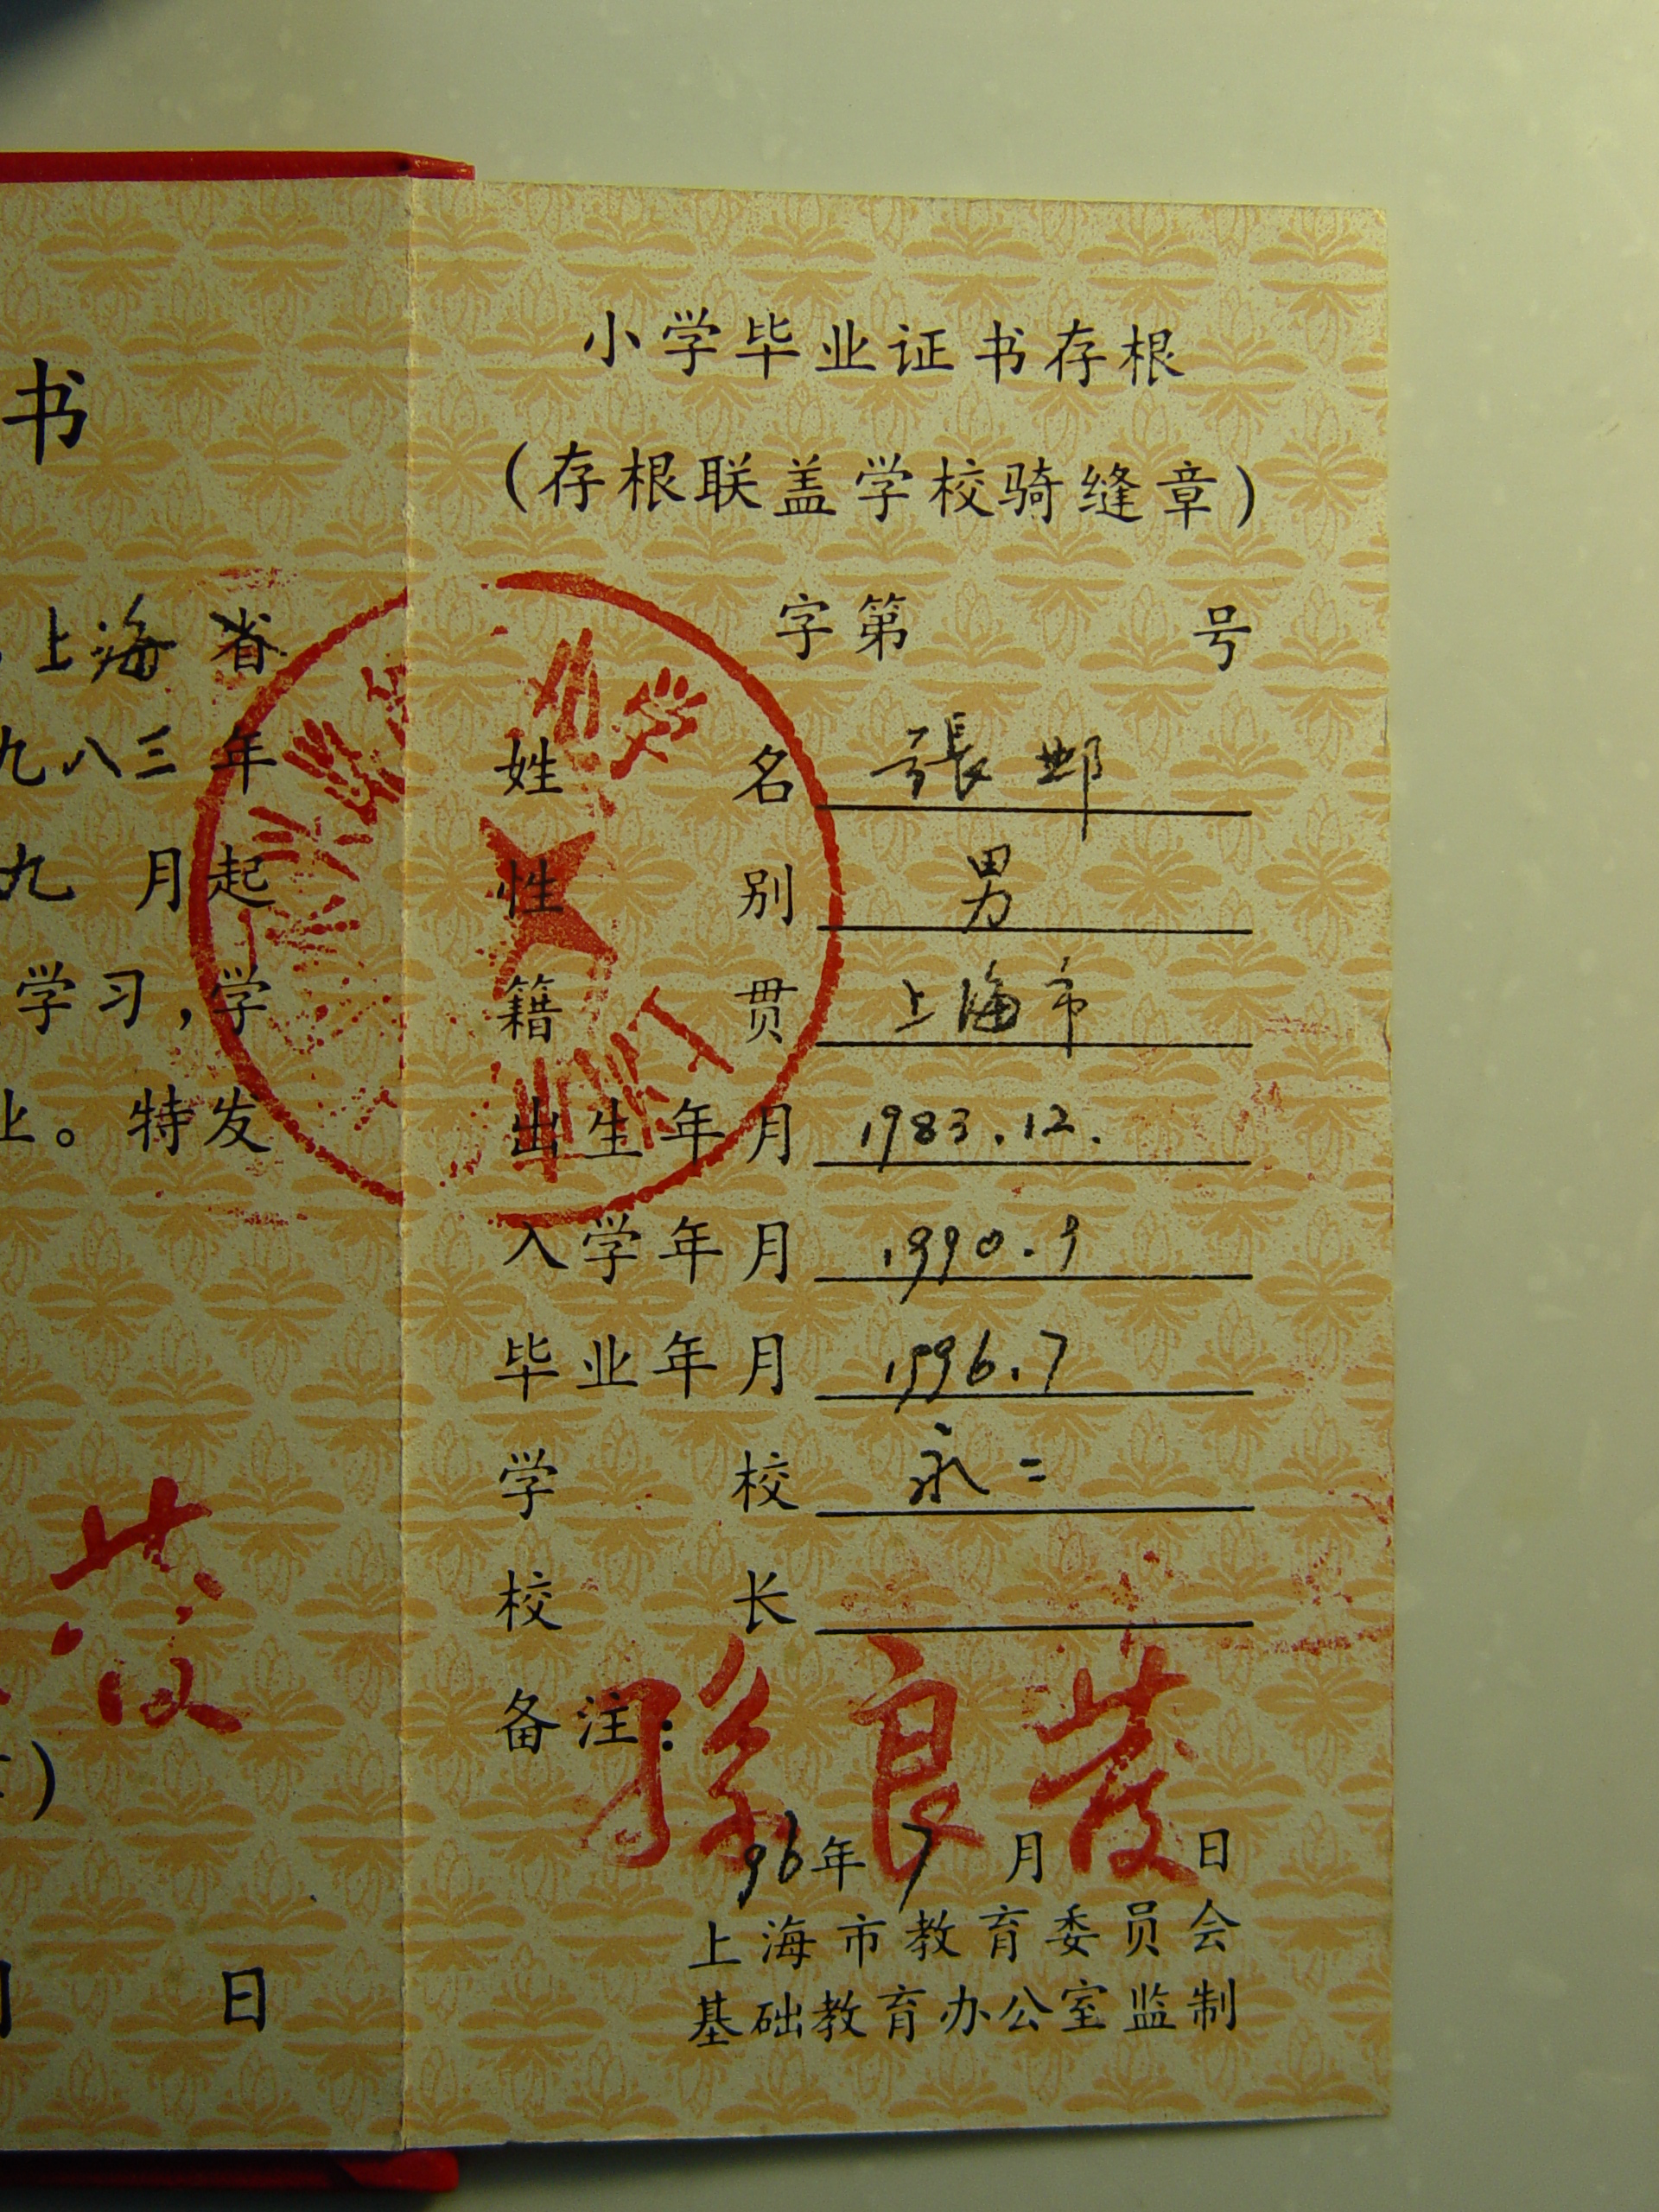 书
上海省
九八三年
九 月起
学习,学
业。特发
日
小学毕业证书存根
(存根联盖学校骑缝章)
字第 号
姓 名 張邺
性 别 男
籍 贯 上海市
出生年月 1983.12.
入学年月 1990.9
毕业年月 1996.7
学 校 永二
校 长
备注:
孫良茂
96年7月 日
上海市教育委员会
基础教育办公室监制